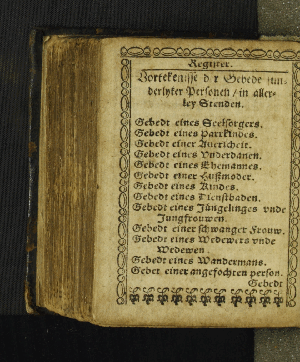 Register.
Vortekenisse der Gebede sun-
derlyker Personen / in aller-
ley Stenden.
Gebedt eines Seelsorgers.
Gebedt eines Parrkindes.
Gebedt einer Auericheit.
Gebedt eines Vnderdanen.
Gebedt eines Ehemannes.
Gebedt einer Hußmoder.
Gebedt eines Kindes.
Gebedt eines Denstbaden.
Gebedt eines Jüngelinges vnde
Jungfrouwen.
Gebedt einer schwanger Frouw.
Gebedt eines Wedewers vnde
Wedewen.
Gebedt eines Wandermans.
Gebet einer angefochten person.
Gebedt